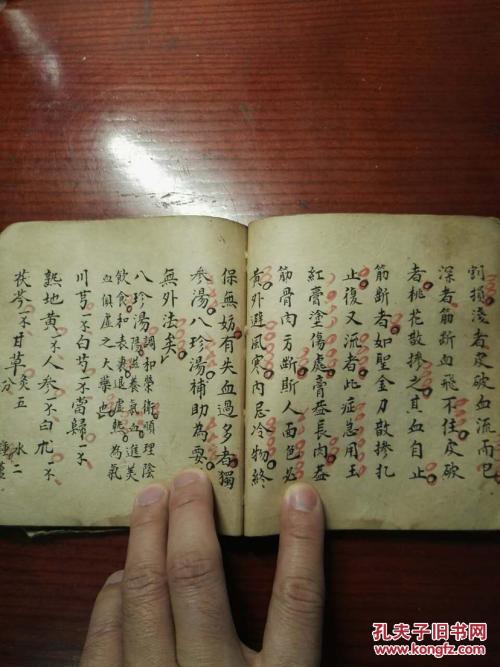 割損淺者皮破血流而已
深者筋斷血飛不住皮破
者桃花散摻之其血自止
筋斷者如聖金刀散摻扎
止後又流者此症急用玉
紅膏塗傷處膏蓋長肉蓋
筋骨肉方斷斯人面色必
黄外避風寒内忌冷物終
保無妨有失血過多者獨
參湯八珍湯補助為要
無外法矣
八珍湯調和榮衛順理陰
陽滋養氣血進美
飲食和表裏退虚熱為氣
血俱虚之大藥也
川芎一不白芍一不當歸一不
熟地黄一不人參一不白朮一不
茯苓一不甘草炙五分
水二
孔夫子旧书网
www.kongfz.com